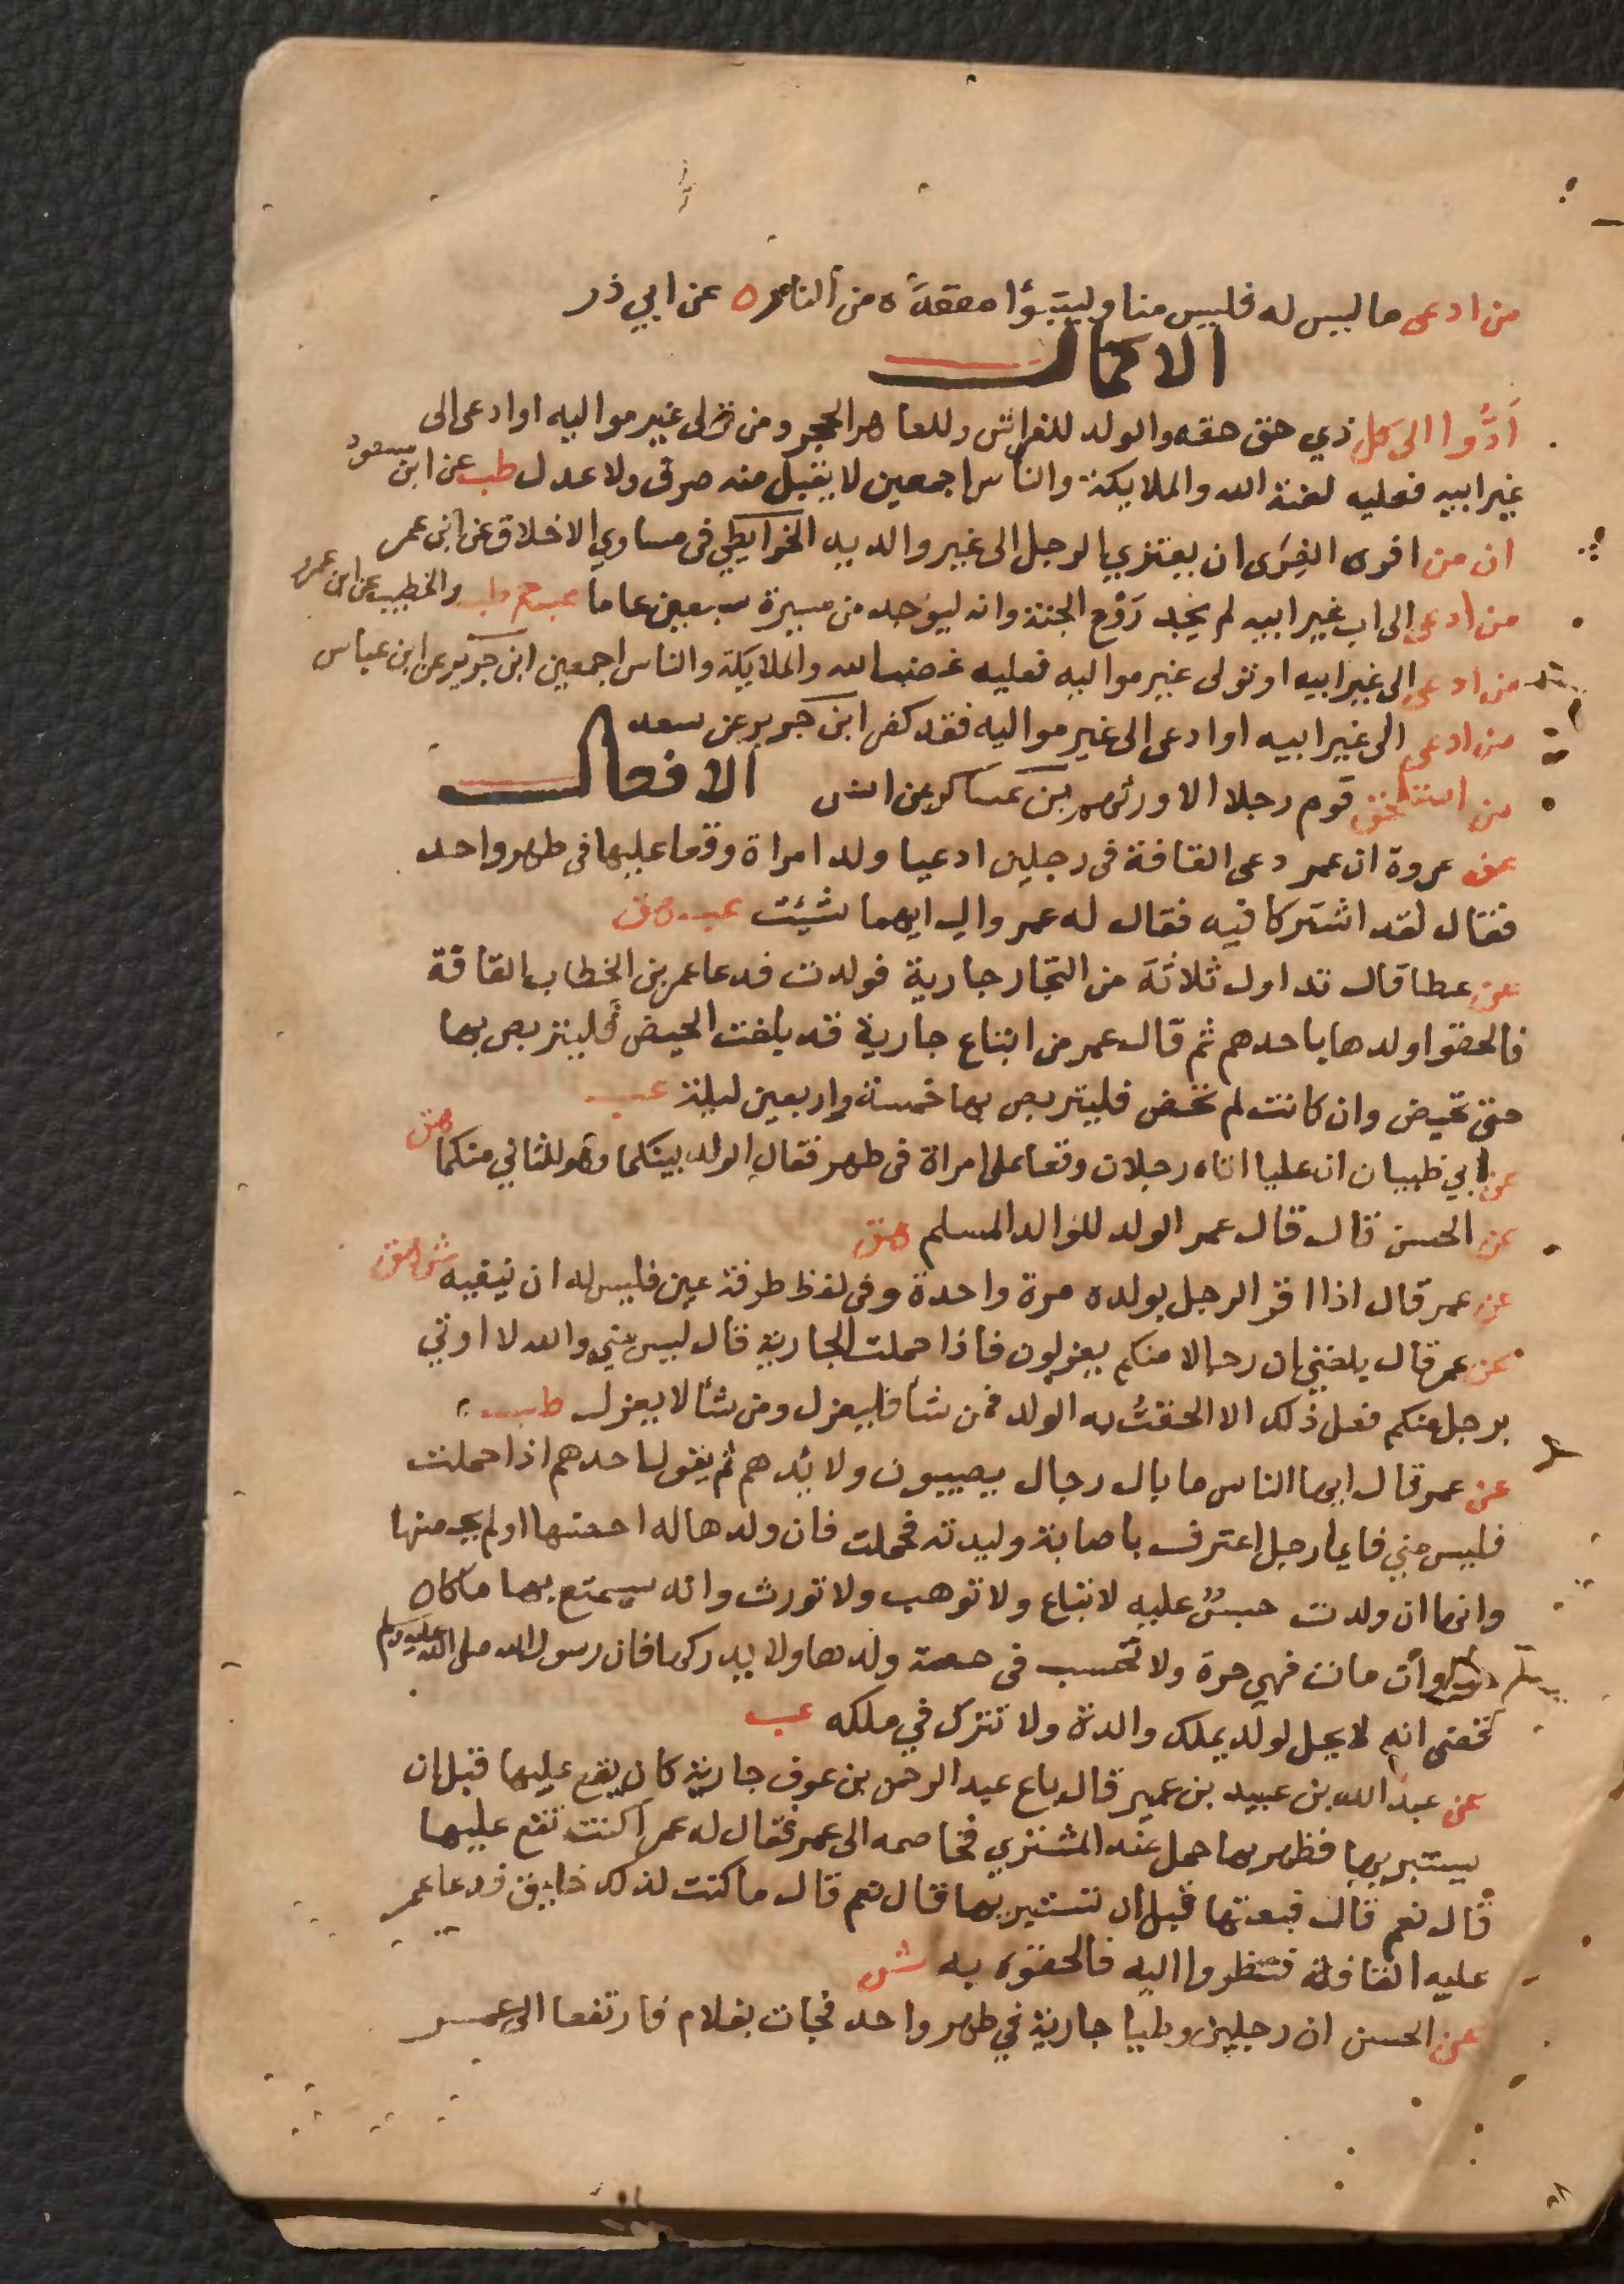 من ادعى ما ليس له فليس منا وليتبوأ مقعده من النار ه عن ابي ذر
الاكمال
أدُّوا الى كل ذي حق حقه والولد للفراش وللعاهر الحجر ومن تولى غير مواليه او ادعى الى
غير ابيه فعليه لعنة الله والملايكة والناس اجمعين لا يقبل منه صرف ولا عدل طب عن ابن مسعود
ان من افرى الفِرَى ان يعتزي الرجل الى غير والديه الخرايطي في مساوي الاخلاق عن ابن عمر
من ادعى الى اب غير ابيه لم يجد رَوْح الجنة وانه ليوجد من مسيرة سبعين عاما عب حم طب والخطيب عن ابن عمرو
من ادعى الى غير ابيه او تولى غير مواليه فعليه غضب الله والملايكة والناس اجمعين ابن جرير عن ابن عباس
من ادعى الى غير ابيه او ادعى الى غير مواليه فقد كفر ابن جرير عن سعد
من استلحق قوم رجلا الا ورثهم بن عساكر عن انس الافعال
عن عروة ان عمر دعى القافة في رجلين ادعيا ولد امراة وقعا عليها في طهر واحد
فقال لقد اشتركا فيه فقال له عمر وال ايهما شيئت عب هق
عن عطا قال تداول ثلاثة من التجار جارية فولدت فدعا عمر بن الخطاب القافة
فالحقوا ولدها باحدهم ثم قال عمر من ابتاع جارية قد بلغت الحيض فليتربص بها
حتى تحيض وان كانت لم تحض فليتربص بها خمسة واربعين ليلة عب
عن ابي ظبيان ان عليا اتاه رجلان وقعا على امراة في طهر فقال الولد بينكما وهو للثاني منكما هق
عن الحسن قال قال عمر الولد للوالد المسلم هق
عن عمر قال اذا اقر الرجل بولده مرة واحدة وفي لفظ طرفة عين فليس له ان ينفيه ش هق
عن عمر قال بلغني ان رجالا منكم يعزلون فاذا حملت الجارية قال ليس مني والله لا اوتي
برجل منكم فعل ذلك الا الحقتُ به الولد فمن شأ فليعزل ومن شأ لا يعزل طب
عن عمر قال ايها الناس ما بال رجال يصيبون ولايدهم ثم يقول احدهم اذا حملت
فليس مني فايما رجل اعترف باصابة وليدته فحملت فان ولدها له احصنها او لم يحصنها
وانها ان ولدت حبسٌ عليه لا تباع ولا توهب ولا تورث وانه يستمتع بها ما كان
وان مات فهي حرة ولا تحسب في حصة ولدها ولا يدركها فان رسول الله صلى الله عليه وسلم
قضى انه لا يحل لولد يملك والدة ولا تترك في ملكه عب
عن عبد الله بن عبيد بن عمير قال باع عبد الرحمن بن عوف جارية كان يقع عليها قبل ان
يستبريها فظهر بها حمل عند المشتري فخاصمه الى عمر فقال له عمر اكنت تقع عليها
قال نعم قال فبعتها قبل ان تستبريها قال نعم قال ما كنت لذلك خليق فدعا عمر
عليه القافة فنظروا اليه فالحقوه به ش
عن الحسن ان رجلين وطيا جارية في طهر واحد فجات بغلام فارتفعا الى عمر